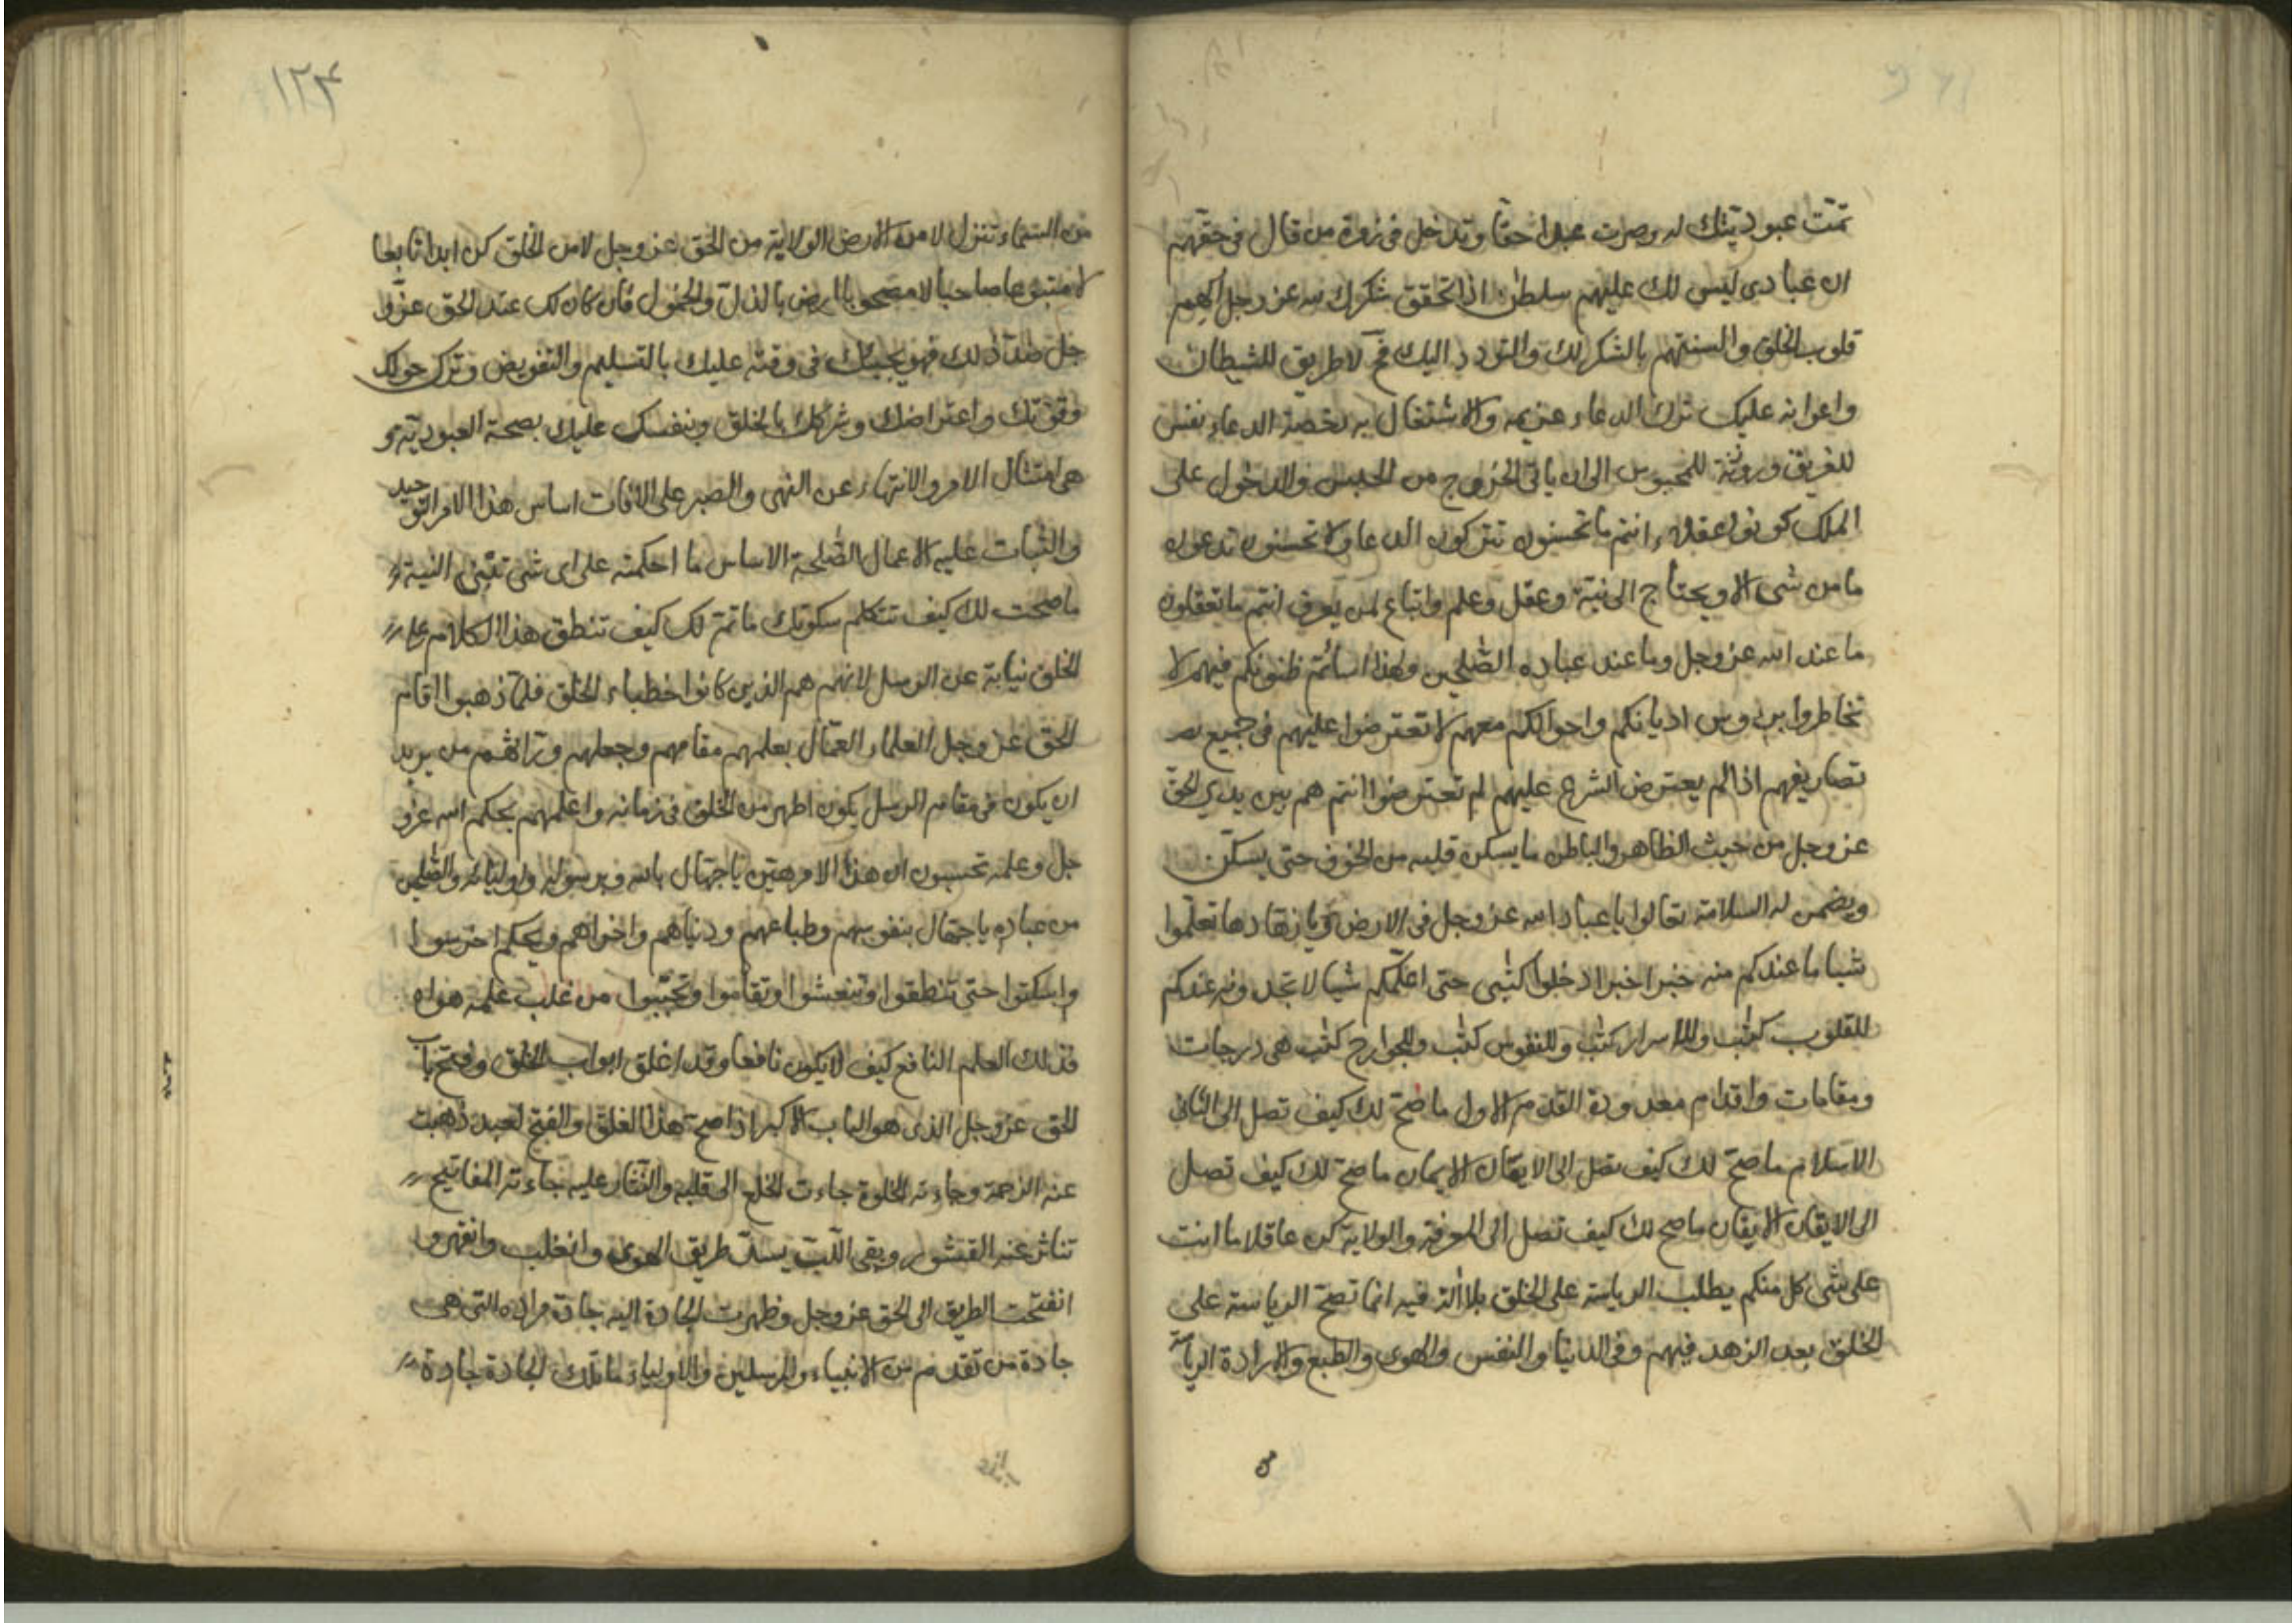 تمّت عبوديّتك له وصرت عبدا حقا وتدخل فى زمرة من قال فى حقهم
ان عبادى ليس لك عليهم سلطن اذا تحقق شكرك لله عز وجل الهم
قلوب الخلق والسنتهم بالشكر لك والتودد اليك فح لا طريق للشيطان
واعوانه عليك ترك الدعاء عزيمه والاشتغال به رخصة الدعاء نفس
للغريق وروزنة للمحبوس الى ان ياتى الخروج من الحبس والدخول على
الملك كونوا عقلاء انتم ما تحسنون تتركون الدعا ولا تحسنون تدعون
ما من شى الا ويحتاج الى نية وعقل وعلم واتباع لمن يعرف انتم ما تعقلون
ما عند الله عز وجل وما عند عباده الصٰلحين ولهذا اسأتم ظنونكم فيهم لا
تخاطروا برؤوس اديانكم واحوالكم معهم لا تعترضوا عليهم فى جميع تصر
تصاريفهم اذا لم يعترض الشرع عليهم لم تعترضوا انتم هم بين يدي الحقّ
عز وجل من حيث الظاهر والباطن ما يسكن قلبه من الخوف حتى يسكّن
ويضمن له السلامة تعالوا يا عباد الله عز وجل فى الارض ويا زهادها تعلّموا
شيا ما عندكم منه خبر اخبرا دخلوا كتٰبى حتى اعلّمكم شيا لا تجدونه عندكم
للقلوب كتٰب وللاسرار كتٰب وللنفوس كتٰب وللجوارح كتٰب هى درجات
ومقامات واقدام معدودة القدم الاول ما صحّ لك كيف تصل الى الثانى
الاسلام ما صحّ لك كيف تصل الى الايقان الايمان ما صحّ لك كيف تصل
الى الايقان الايقان ما صح لك كيف تصل الى المعرفة والولاية كن عاقلا ما انت
على شى كل منكم يطلب الرياسة على الخلق بلا اٰلة فيه انما تصحّ الرياسة على
الخلق بعد الزهد فيهم وفى الدنيا والنفس والهوى والطبع والارادة الرياسة
من
١٢٤
من السماء تنزل لا من الارض الولاية من الحق عز وجل لا من الخلق كن ابدا تابعا
لا متبوعا صاحبا لا مصحوبا ارض بالذلّ والخمول فان كان لك عند الحق عزّ و
جل ضدّ ذلك فهو يجيئك فى وقته عليك بالتسليم والتفويض وترك حولك
وقوّتك واعتراضك وشركك بالخلق وبنفسك عليك بصحة العبوديّة و
هى امتثال الامر والانتهاء عن النهى والصبر على الافات اساس هذا الامر التوحيد
والثبات عليه الاعمال الصّٰلحة الاساس ما احكمته على اى شى تبنى النية
ما صحت لك كيف تتكلم سكوتك ما تمّ لك كيف تنطق هذا الكلام على
الخلق نيابة عن الرسل لانهم هم الذين كانوا خطباء الخلق فلمّا ذهبوا اقام
الحق عز وجل العلماء العمّال بعلمهم مقامهم وجعلهم ورّاثهم من يريد
ان يكون فى مقام الرسل يكون اطهر من الخلق فى زمانه واعلمهم بحكم الله عز و
جل وعلمه تحسبون ان هذا الامر هيّن يا جهّال بالله وبرسوله واوليائه والصّٰلحين
من عباده يا جهّال بنفوسهم وطباعهم ودنياهم واخراهم ويحكم اخرسوا
واسكتوا حتى تنطقوا وتنعشوا وتقاموا وتحيّبوا من غلب علمه هواه
فذلك العلم النافع كيف لا يكون نافعا وقد اغلق ابواب الخلق وفتح باب
الحق عز وجل الذى هو الباب الاكبر اذا صحّ هذا الغلق والفتح لعبد ذهبت
عنه الزحمة وجاءته الخلوة جاءت الخلع الى قلبه والنثار عليه جاءته المفاتيح
تناثر عنه القشور وبقى اللّبّ يسدّ طريق الهوى وانغلب وانقهر و
انفتحت الطريق الى الحق عز وجل وظهرت الجادة اليه جادة مراده التى هى
جادة من تقدم من الانبياء والمرسلين والاولياء ما تلك الجادة جادة